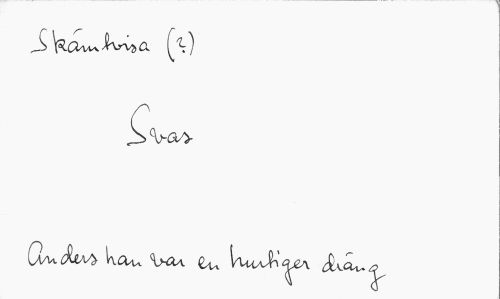 Skämtvisa (?)
Svas
Anders han var en hurtiger dräng